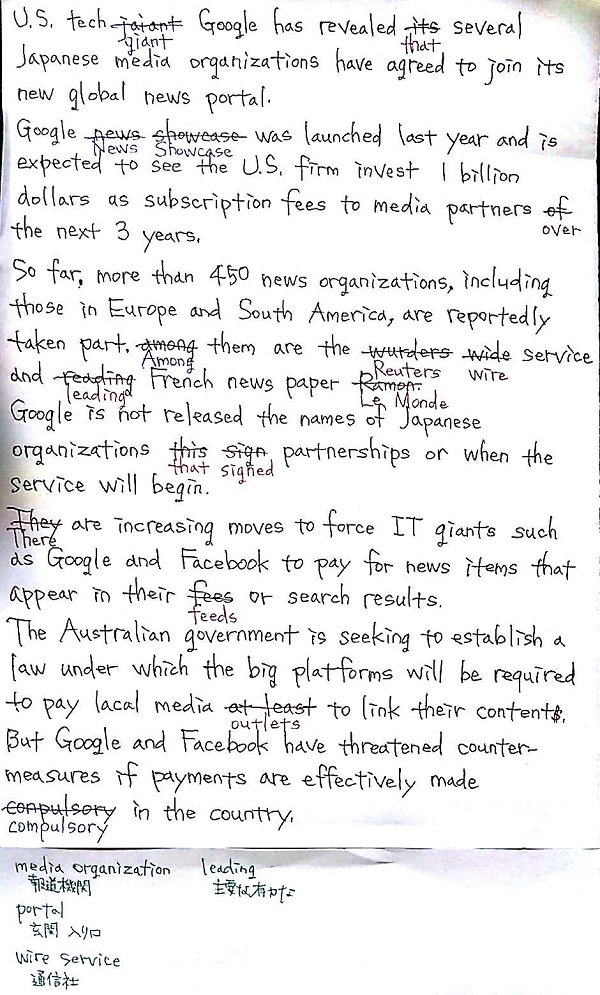 U.S. tech jaiant Google has revealed its several
giant that
Japanese media organizations have agreed to join its
new global news portal.
Google news showcase was launched last year and is
News Showcase
expected to see the U.S. firm invest 1 billion
dollars as subscription fees to media partners of
over
the next 3 years.
So far, more than 450 news organizations, including
those in Europe and South America, are reportedly
taken part. among them are the wurders wide service
Among Reuters wire
and readding French news paper Ramon.
leading Le Monde
Google is not released the names of Japanese
organizations this sign partnerships or when the
that signed
service will begin.
They are increasing moves to force IT giants such
There
as Google and Facebook to pay for news items that
appear in their fees or search results.
feeds
The Australian government is seeking to establish a
law under which the big platforms will be required
to pay lacal media at least to link their contents.
outlets
But Google and Facebook have threatened counter-
measures if payments are effectively made
conpulsory in the country.
compulsory
media organization leading
報道機関 主要な有力な
portal
玄関 入り口
wire service
通信社